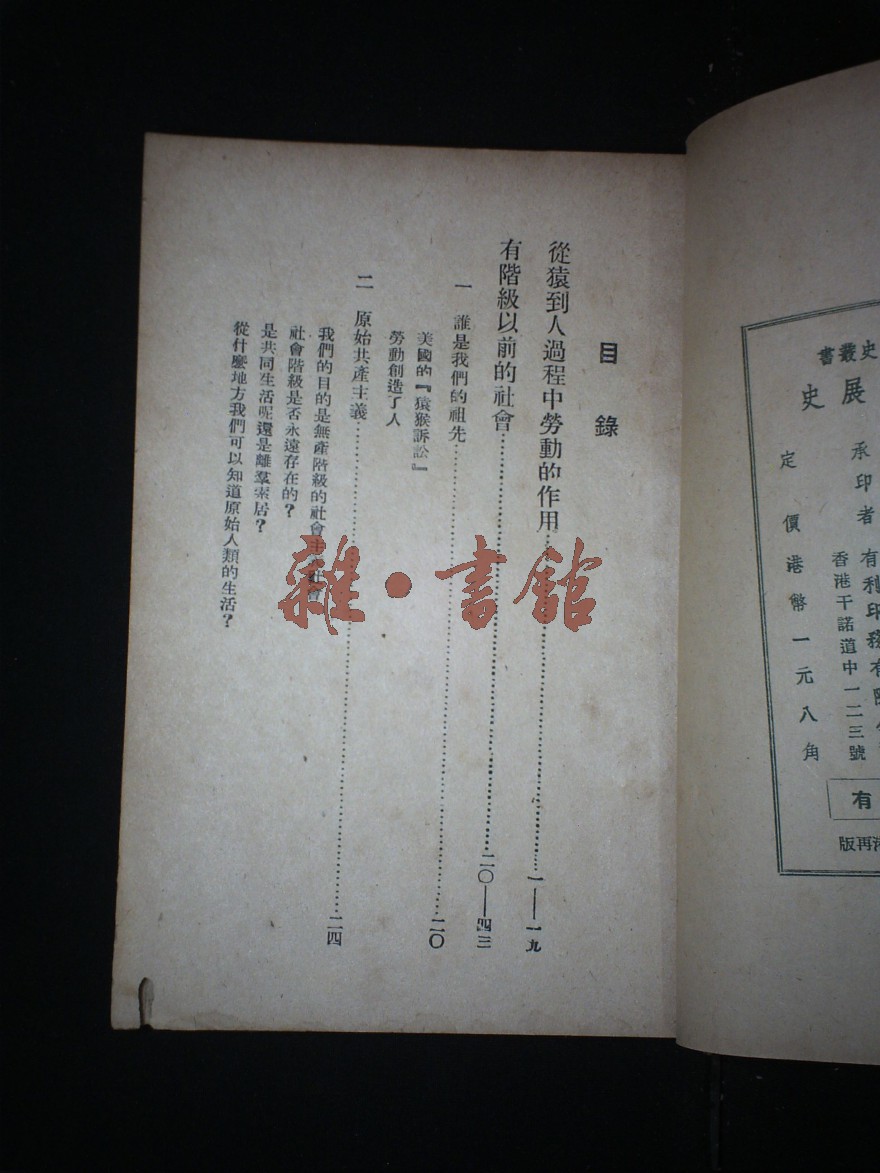 目錄
從猿到人過程中勞動的作用……一——一九
有階級以前的社會……二〇——四三
一 誰是我們的祖先……二〇
美國的『猿猴訴訟』
勞動創造了人
二 原始共產主義……二四
我們的目的是無產階級的社會主義社會
社會階級是否永遠存在的?
是共同生活呢還是離羣索居?
從什麼地方我們可以知道原始人類的生活?
雜·書館
史叢書
展史
承印者 有利印務有限
香港干諾道中一二三號
定價港幣一元八角
有
港再版